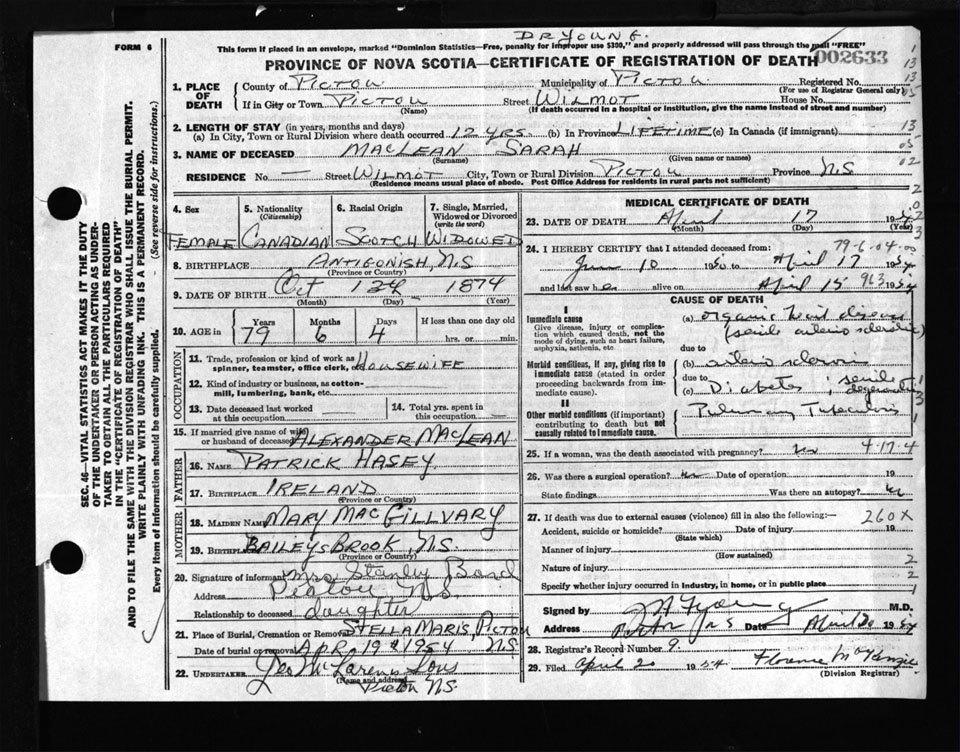 DR YOUNG.
FORM 6
This form if placed in an envelope, marked "Dominion Statistics—Free, penalty for improper use $300," and properly addressed will pass through the mail "FREE"
PROVINCE OF NOVA SCOTIA—CERTIFICATE OF REGISTRATION OF DEATH
002633
1. PLACE OF DEATH
County of PICTOU Municipality of PICTOU Registered No.
(For use of Registrar General only)
If in City or Town PICTOU Street WILMOT House No.
(Name) (If death occurred in a hospital or institution, give the name instead of street and number)
2. LENGTH OF STAY (in years, months and days)
(a) In City, Town or Rural Division where death occurred 12 yrs. (b) In Province LIFETIME (c) In Canada (if immigrant)
3. NAME OF DECEASED MACLEAN SARAH
(Surname) (Given name or names)
RESIDENCE No. — Street WILMOT City, Town or Rural Division PICTOU Province N.S
(Residence means usual place of abode. Post Office Address for residents in rural parts not sufficient)
4. Sex 5. Nationality (Citizenship) 6. Racial Origin 7. Single, Married, Widowed or Divorced (write the word)
FEMALE CANADIAN SCOTCH WIDOWED
8. BIRTHPLACE ANTIGONISH, N.S
(Province or Country)
9. DATE OF BIRTH Oct 1874
(Month) (Day) (Year)
10. AGE in Years Months Days If less than one day old
79 6 4 hrs. or min.
OCCUPATION
11. Trade, profession or kind of work as spinner, teamster, office clerk, etc. HOUSEWIFE
12. Kind of industry or business, as cotton-mill, lumbering, bank, etc.
13. Date deceased last worked at this occupation
14. Total yrs. spent in this occupation
15. If married give name of wife or husband of deceased ALEXANDER MACLEAN
FATHER
16. NAME PATRICK HASEY
17. BIRTHPLACE IRELAND
(Province or Country)
MOTHER
18. MAIDEN NAME MARY MACGILLVARY
19. BIRTHPLACE BAILEYS BROOK, N.S.
(Province or Country)
20. Signature of informant Mrs Stanley Bond
Address Pictou N.S
Relationship to deceased daughter
21. Place of Burial, Cremation or Removal STELLA MARIS, PICTOU
Date of burial or removal APR 19th 1954 N.S
22. UNDERTAKER Geo McLaren & Sons
(Name and address)
Pictou N.S.
MEDICAL CERTIFICATE OF DEATH
23. DATE OF DEATH April 17 1954
(Month) (Day) (Year)
24. I HEREBY CERTIFY that I attended deceased from: 79-6-04
10 1950 to April 17 1954
and last saw her alive on April 15 1954
963
CAUSE OF DEATH
I
Immediate cause
Give disease, injury or complication which caused death, not the mode of dying, such as heart failure, asphyxia, asthenia, etc.
(a) organic heart disease
(senile arterio sclerotic)
due to
Morbid conditions, if any, giving rise to immediate cause (stated in order proceeding backwards from immediate cause).
(b) arterio sclerosis
due to
(c) Diabetes, senile degeneration
II
Other morbid conditions (if important) contributing to death but not causally related to immediate cause.
Pulmonary Tuberculosis
25. If a woman, was the death associated with pregnancy? no 4-17-4
26. Was there a surgical operation? no Date of operation 19
State findings Was there an autopsy? no
27. If death was due to external causes (violence) fill in also the following:— 260X
Accident, suicide or homicide? Date of injury 19
(State which)
Manner of injury
(How sustained)
Nature of injury
Specify whether injury occurred in industry, in home, or in public place
Signed by J H Young M.D.
Address Pictou N S Date April 20 1954
28. Registrar's Record Number 9.
29. Filed April 20 1954 Florence McKenzie
(Division Registrar)
SEC. 46—VITAL STATISTICS ACT MAKES IT THE DUTY
OF THE UNDERTAKER OR PERSON ACTING AS UNDERTAKER TO OBTAIN ALL THE PARTICULARS REQUIRED
IN THE "CERTIFICATE OF REGISTRATION OF DEATH"
AND TO FILE THE SAME WITH THE DIVISION REGISTRAR WHO SHALL ISSUE THE BURIAL PERMIT.
WRITE PLAINLY WITH UNFADING INK. THIS IS A PERMANENT RECORD.
Every item of information should be carefully supplied. (See reverse side for instructions.)